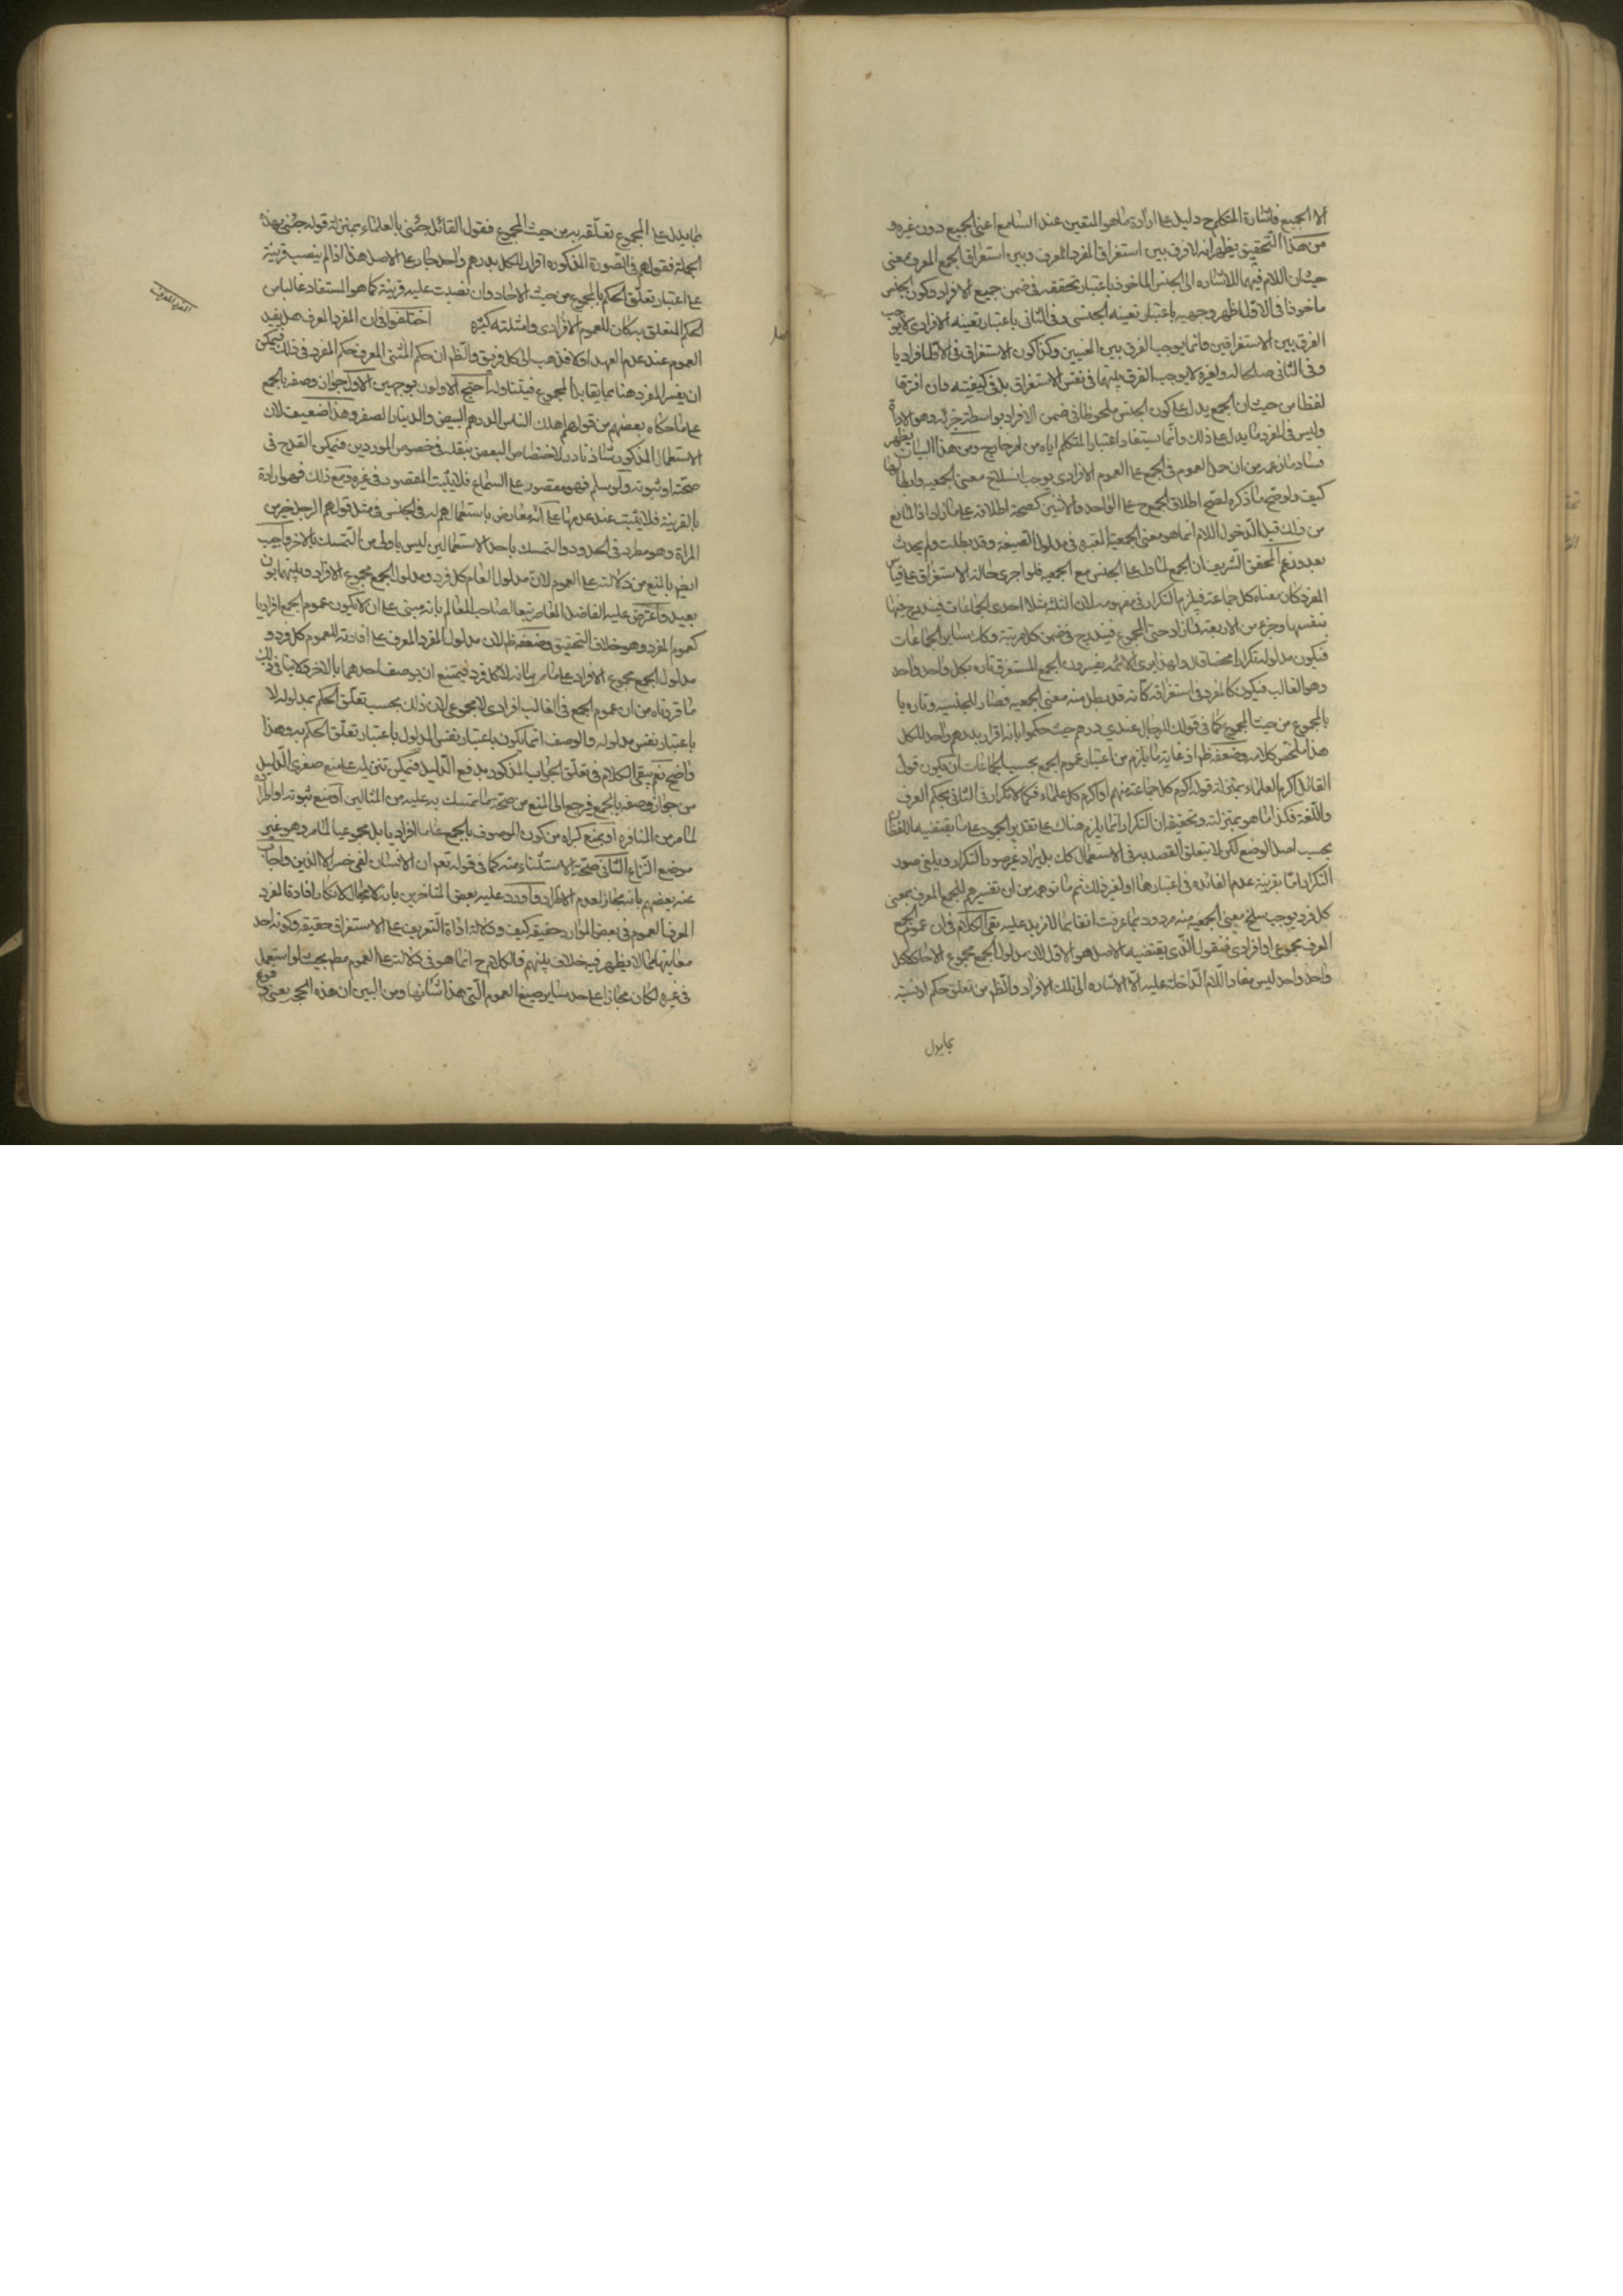 الا الجميع فاشارة المتكلم ح دليل على ارادة ما هو المتعين عند السامع اعنى الجميع دون غيره و
من هذا التحقيق يظهر انه لا فرق بين استغراق المفرد المعرف وبين استغراق الجمع المعرف معنى
حيث ان اللام فيهما للاشاره الى الجنس الماخوذ باعتبار تحققه فى ضمن جميع الافراد وكون الجنس
ماخوذا فى الاول باعتبار تعينه الجنسى وفى الثانى باعتبار تعينه الافرادى لا يوجب
الفرق بين الاستغراقين وانما يوجب الفرق بين التعيين وكذا كون الاستغراق فى الاول افراديا
وفى الثانى صالحا له ولغيره لا يوجب الفرق بينهما فى نفس الاستغراق بل فى كيفيته وان افترقا
لفظا من حيث ان الجمع يدل على كون الجنس ملحوظا فى ضمن الافراد بواسطة جزئه وهو الاداة
وليس فى المفرد ما يدل على ذلك وانما يستفاد اعتبار المتكلم اياه من امر خارج ومن هذا البيان يظهر
فساد ما زعم من ان حمل العموم فى الجمع على العموم الافرادى يوجب انسلاخ معنى الجمعيه وابطالها
كيف ولو صح ما ذكره لصح اطلاق الجموع على الواحد والاثنين كصحة اطلاقه على ما زاد اذ المانع
من ذلك قبل دخول اللام انما هو معنى الجمعية المعتبره فى مدلول الصيغة وقد بطلت ولم يحدث
بعد وزعم المحقق الشريف ان الجمع لما دل على الجنس مع الجمعيه فلو اجرى حاله الاستغراق على قياس
المفرد كان معناه كل جماعة فيلزم التكرار فى مفهومه لان الثلثه مثلا احدى الجماعات فيندرج فيها
بنفسها وجزء من الاربعة فما زاد حتى المجموع فيندرج فى ضمن كل مرتبة وكذا سائر الجماعات
فيكون مدلوله تكرارا محضا قال ولهذا يرى الائمه يفسرون الجمع المستغرق تاره بكل واحد واحد
وهو الغالب فيكون كالمفرد فى استغراقه كانه قد بطل منه معنى الجمعيه فصار للجنسيه وتاره با
بالمجموع من حيث المجموع كما فى قولك للرجال عندي درهم حيث حكموا بانه اقرار بدرهم واحد للكل
هذا ملخص كلامه وضعفه ظ اذ غاية ما يلزم من اعتبار عموم الجمع بحسب الجماعات ان يكون قول
القائل اكرم العلماء بمنزلة قوله اكرم كل جماعة منهم او اكرم كل علماء فكما لا تكرار فى الثانى بحكم العرف
واللغة فكذا ما هو بمنزلته وتحقيقه ان التكرار انما يلزم هناك على تقدير الجمود على ما يقتضيه اللفظ
بحسب اصل الوضع لكن لا يتعلق القصد به فى الاستعمال كك بل يراد غير صور التكرار ويلغى صور
التكرار اما بقرينة عدم الفائده فى اعتبارها او لغير ذلك ثم ما توهمه من ان تفسيرهم للجمع المعرف بمعنى
كل فرد يوجب سلخ معنى الجمعيه منه مردود بما عرفت انفا بما لا مزيد عليه بقى الكلام فى ان عموم الجمع
المعرف مجموعى او افرادى فنقول الذى يقتضيه الاصل هو الاول لان مدلول الجمع مجموع الاحاد لا كل
واحد واحد وليس مفاد اللام الداخلة عليه الا الاشاره الى تلك الافراد والظ من تعلق حكم او نسبة
بما يدل
بما يدل على المجموع تعلقه به من حيث المجموع فقول القائل جئنى بالعلماء بمنزلة قوله جئنى بهذه
الجماعة فقولهم فى الصورة المذكوره اقرار للكل بدرهم واحد جار على الاصل هذا اذا لم ينصب قرينة
على اعتبار تعلق الحكم بالمجموع من حيث الاحاد وان نصبت عليه قرينة كما هو المستفاد غالبا من
الحكم المتعلق به كان للعموم الافرادى وامثلته كثيره اختلفوا فى ان المفرد المعرف هل يفيد
العموم عند عدم العهد او لا فذهب الى كل فريق والظ ان حكم المثنى المعرف حكم المفرد فى ذلك فيمكن
ان يفسر المفرد هنا بما يقابل المجموع فيتناوله احتج الاولون بوجهين الاول جواز وصفه بالجمع
على ما حكاه بعضهم من قولهم اهلك الناس الدرهم البيض والدينار الصفر وهذا ضعيف لان
الاستعمال المذكور شاذ نادر لاختصاص البعض بنقله فى خصوص الموردين فيمكن القدح فى
صحته او ثبوته ولو سلم فهو مقصور على السماع فلا يثبت المقصود فى غيره ومع ذلك فهو ارادة
بالقرينة فلا يثبت عند عدمها على انه معارض باستعمالهم له فى الجنس فى مثل قولهم الرجل خير من
المراة وهو مطرد فى الحدود والتمسك باحد الاستعمالين ليس باولى من التمسك بالاخر واجيب
ايضا بالمنع من دلالته على العموم لان مدلول العام كل فرد ومدلول الجمع مجموع الافراد وبينهما بون
بعيد واعترض عليه الفاضل المعاصر تبعا لصاحب المعالم بانه مبنى على ان لا يكون عموم الجمع افراديا
كعموم المفرد وهو خلاف التحقيق وضعفه ظ لان مدلول المفرد المعرف على افادته للعموم كل فرد و
مدلول الجمع مجموع الافراد على ما مر بيانه لا كل فرد فيمتنع ان يوصف احدهما بالاخر ولا ينافى ذلك
ما قررناه من ان عموم الجمع فى الغالب افرادى لا مجموعى لان ذلك بحسب تعلق الحكم بمدلوله لا
باعتبار نفس مدلوله والوصف انما يكون باعتبار نفس المدلول لا باعتبار تعلق الحكم به وهذا
واضح نعم يبقى الكلام فى تعلق الجواب المذكور بدفع الدليل فيمكن تنزيله على منع صغرى الدليل
من جواز وصفه بالجمع فيرجع الى المنع من صحة ما يتمسك به عليه من المثالين او منع ثبوته او اطراده
لما مر من المنافره او بمنع كبراه من كون الموصوف بالجمع عاما افراديا بل مجموعيا لما مر وهو غير
موضع النزاع الثانى صحة الاستثناء منه كما فى قوله تعم ان الانسان لفى خسر الا الذين واجاب
عنه بعضهم بانه مجاز لعدم الاطراد واورد عليه بعض المتاخرين بانه لا مجال لانكار افادة المفرد
المعرف العموم فى بعض الموارد حقيقه كيف ودلالة اداة التعريف على الاستغراق حقيقه وكونه احد
معانيها مما لا يظهر فيه خلاف بينهم فالكلام ح انما هو فى دلالته على العموم مطم بحيث لو استعمل
فى غيره لكان مجازا على حد سائر صيغ العموم التى هذا شانها ومن البين ان هذه الحجه
المفرد المعرف